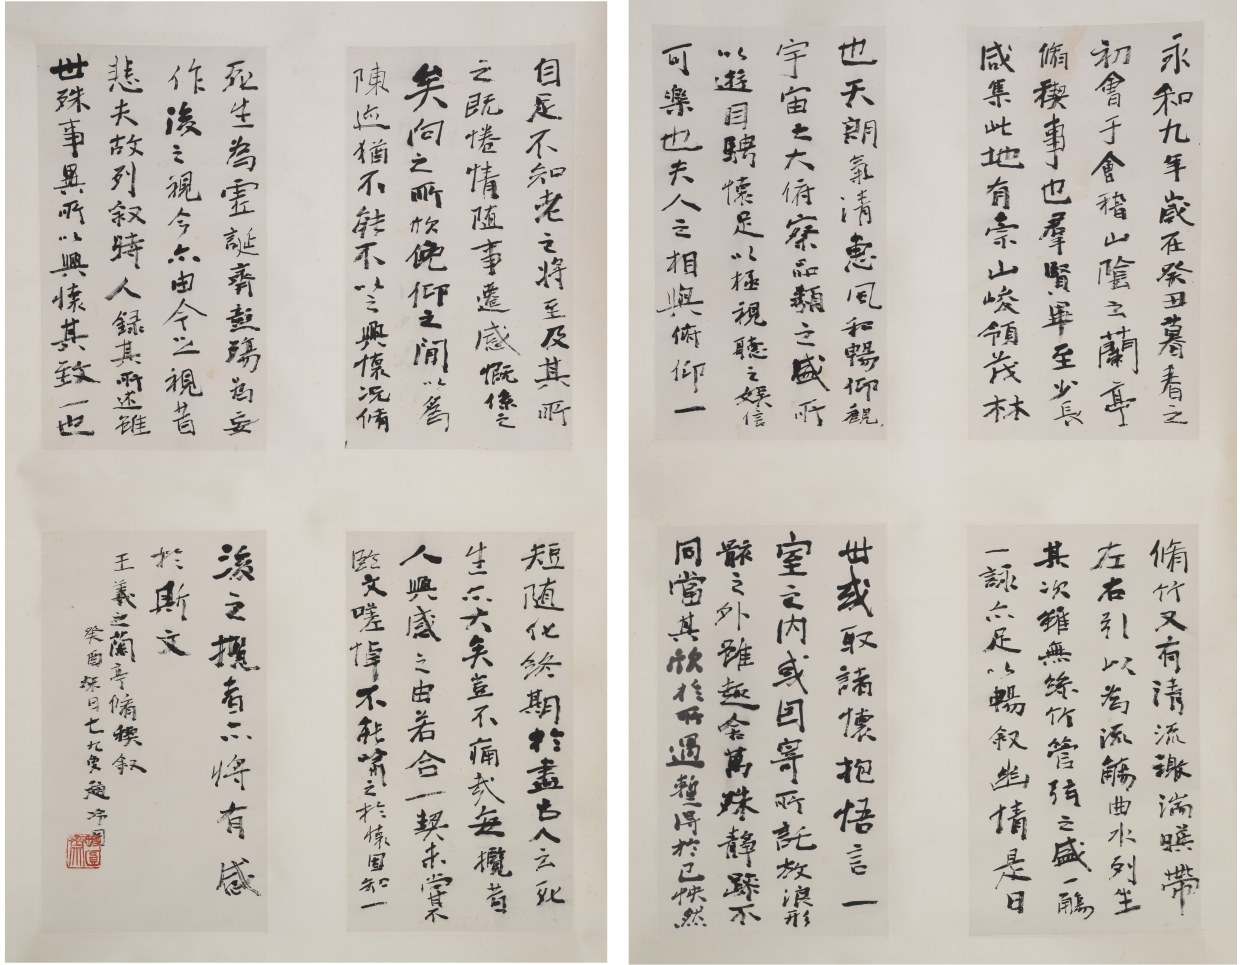 永和九年歲在癸丑暮春之
初會于會稽山陰之蘭亭
脩稧事也羣賢畢至少長
咸集此地有崇山峻領茂林
脩竹又有清流激湍暎帶
左右引以為流觴曲水列坐
其次雖無絲竹管弦之盛一觴
一詠亦足以暢叙幽情是日
也天朗氣清惠風和暢仰觀
宇宙之大俯察品類之盛所
以遊目騁懷足以極視聽之娛信
可樂也夫人之相與俯仰一
世或取諸懷抱悟言一
室之内或因寄所託放浪形
骸之外雖趣舍萬殊靜躁不
同當其欣於所遇暫得於己怏然
自足不知老之將至及其所
之既惓情随事遷感慨係之
矣向之所欣俛仰之閒以為
陳迹猶不能不以之興懷況脩
短随化終期於盡古人云死
生亦大矣豈不痛哉每攬昔
人興感之由若合一契未嘗不
臨文嗟悼不能喻之於懷固知一
死生為虛誕齊彭殤為妄
作後之視今亦由今之視昔
悲夫故列叙時人録其所述雖
世殊事異所以興懷其致一也
後之攬者亦將有感
於斯文
王羲之蘭亭脩稧叙
癸酉秋日七九叟趙冷月